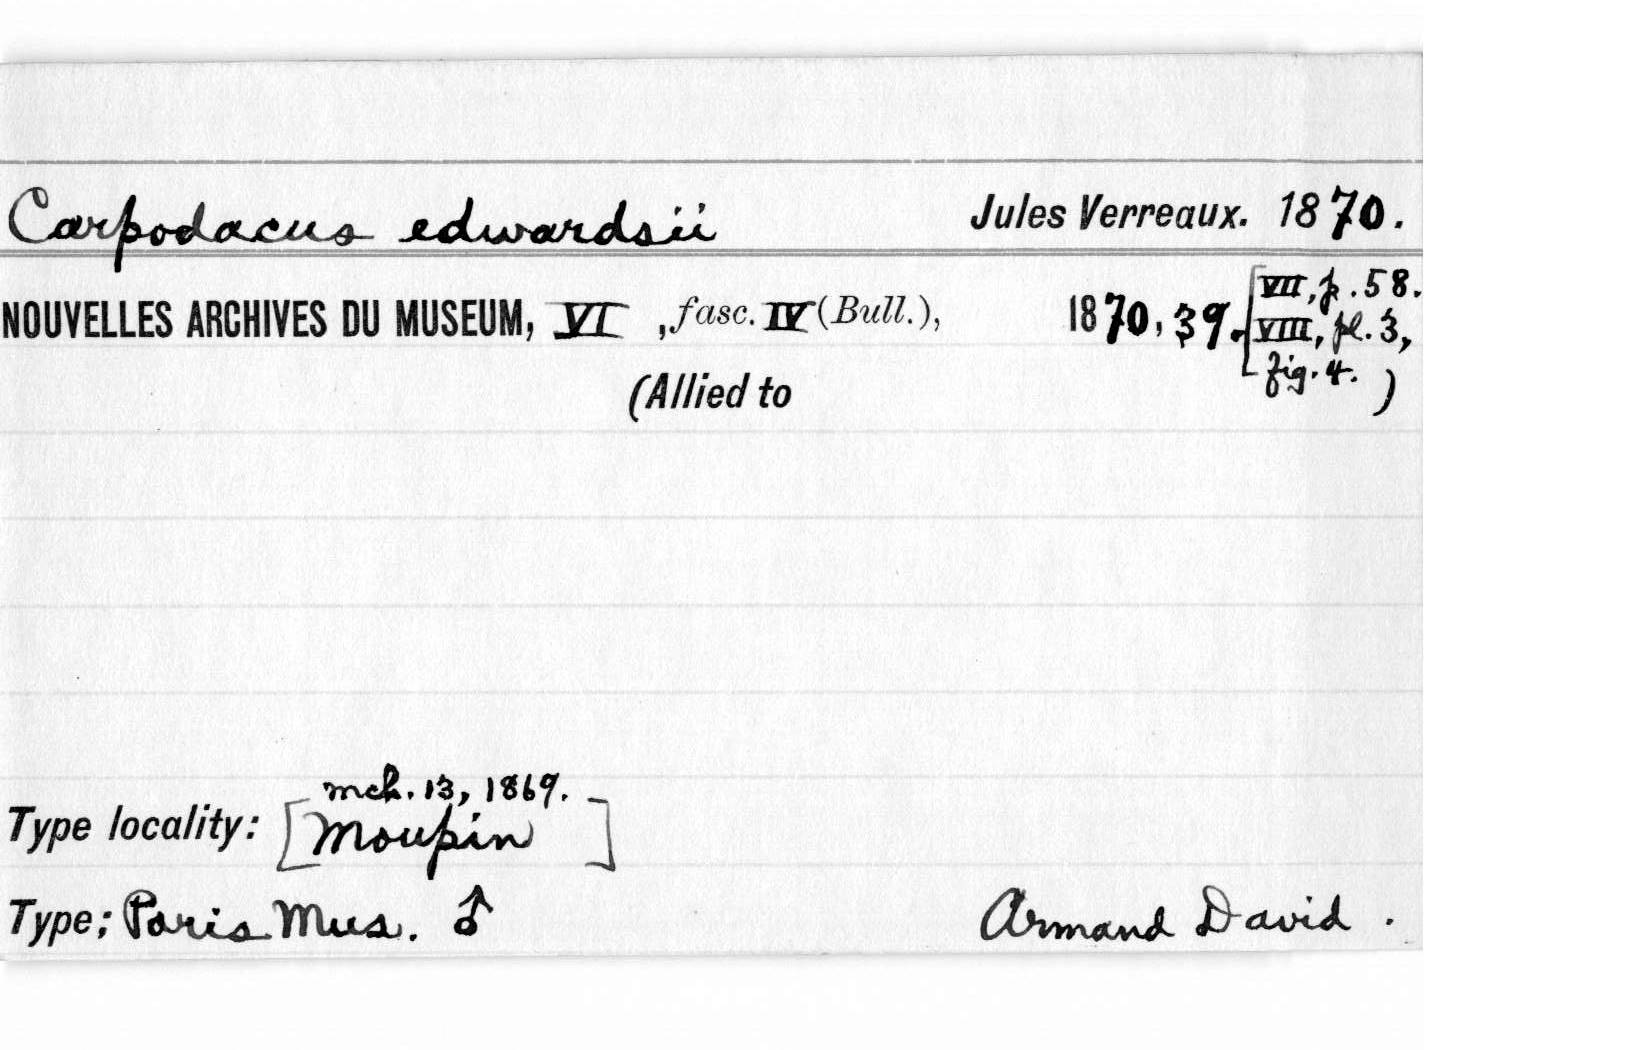 Carpodacus edwardsii Jules Verreaux. 1870.
NOUVELLES ARCHIVES DU MUSEUM, VI , fasc. IV (Bull.), 1870, 39. [VII, p. 58.
VIII, pl. 3,
fig. 4.
(Allied to )
mch. 13, 1869.
Type locality: [Moupin]
Type; Paris Mus. ♂ Armand David.